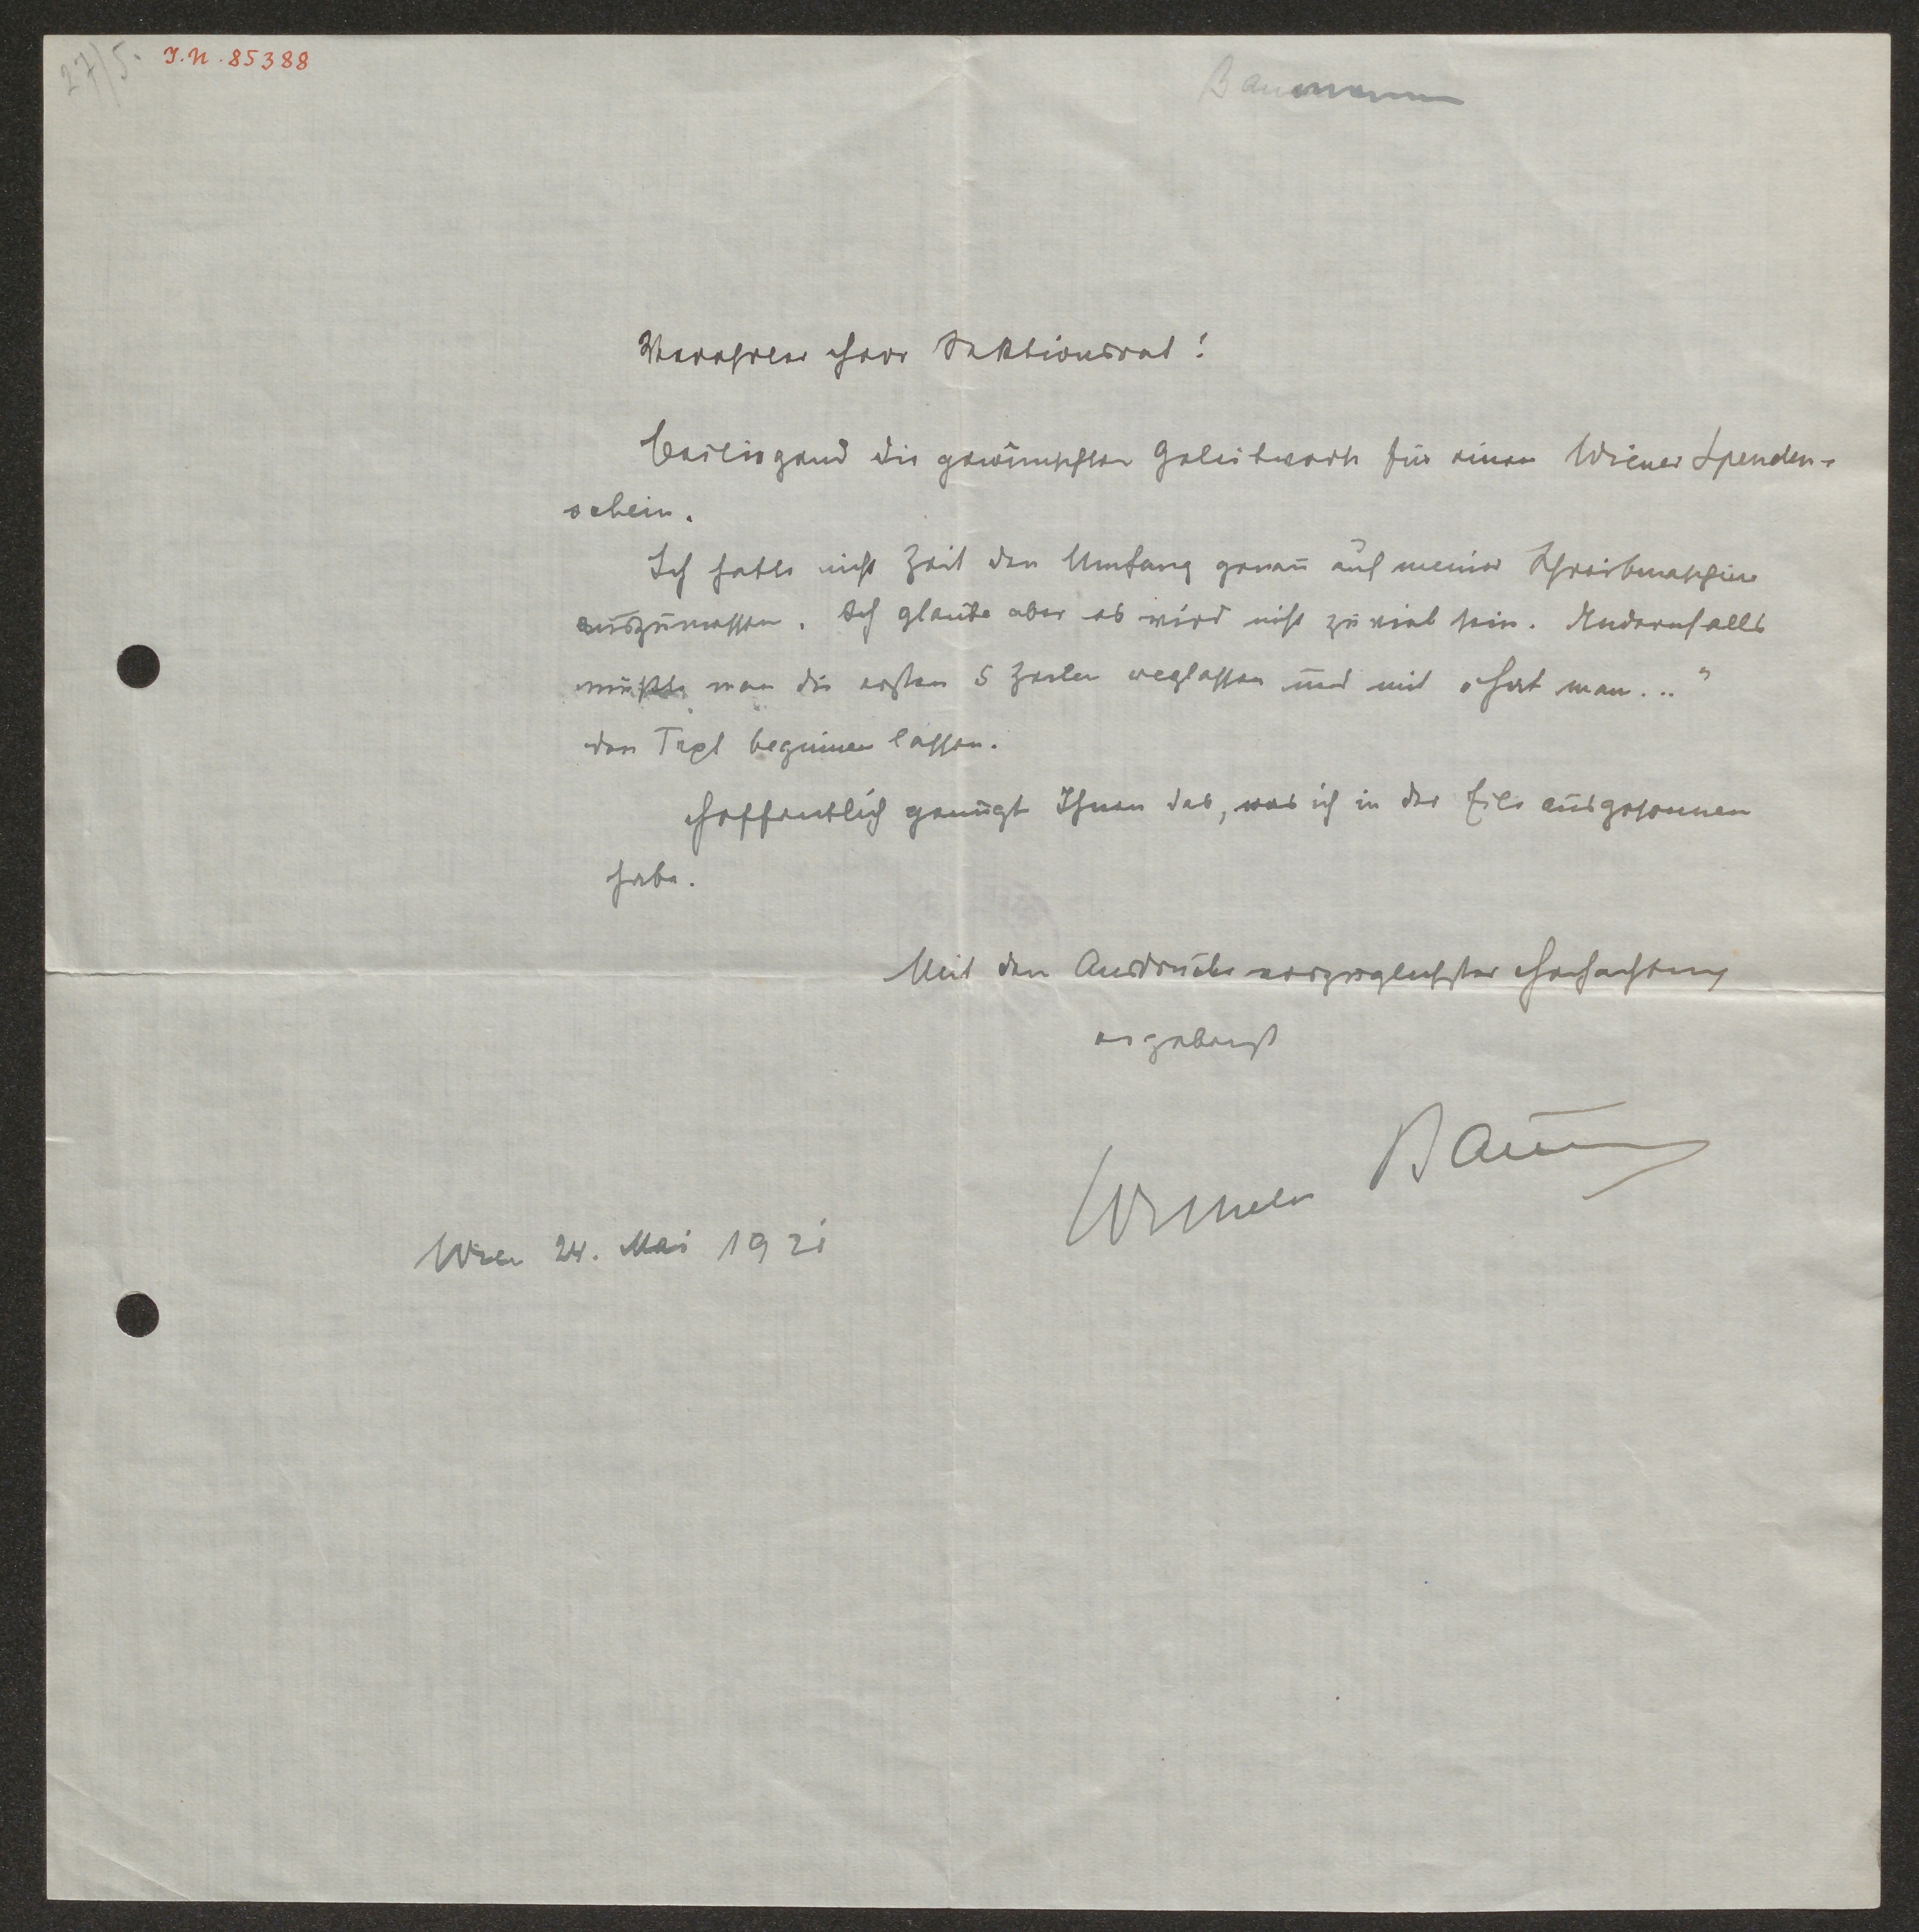 27/5. I.N. 85388
Baumann
Verehrter Herr Sektionsrat!
Beiliegend die gewünschten Geleitworte für einen Wiener Spenden-
schein.
Ich hatte nicht Zeit den Umfang genau auf meiner Schreibmaschine
auszumessen. Ich glaube aber es wird nicht zu viel sein. Andernfalls
müßte man die ersten 5 Zeilen weglassen und mit „Hat man..."
den Text beginnen lassen.
Hoffentlich genügt Ihnen das, was ich in der Eile ausgesonnen
habe.
Mit dem Ausdrucke vorzüglichster Hochachtung
ergebenst
Wien 24. Mai 1921